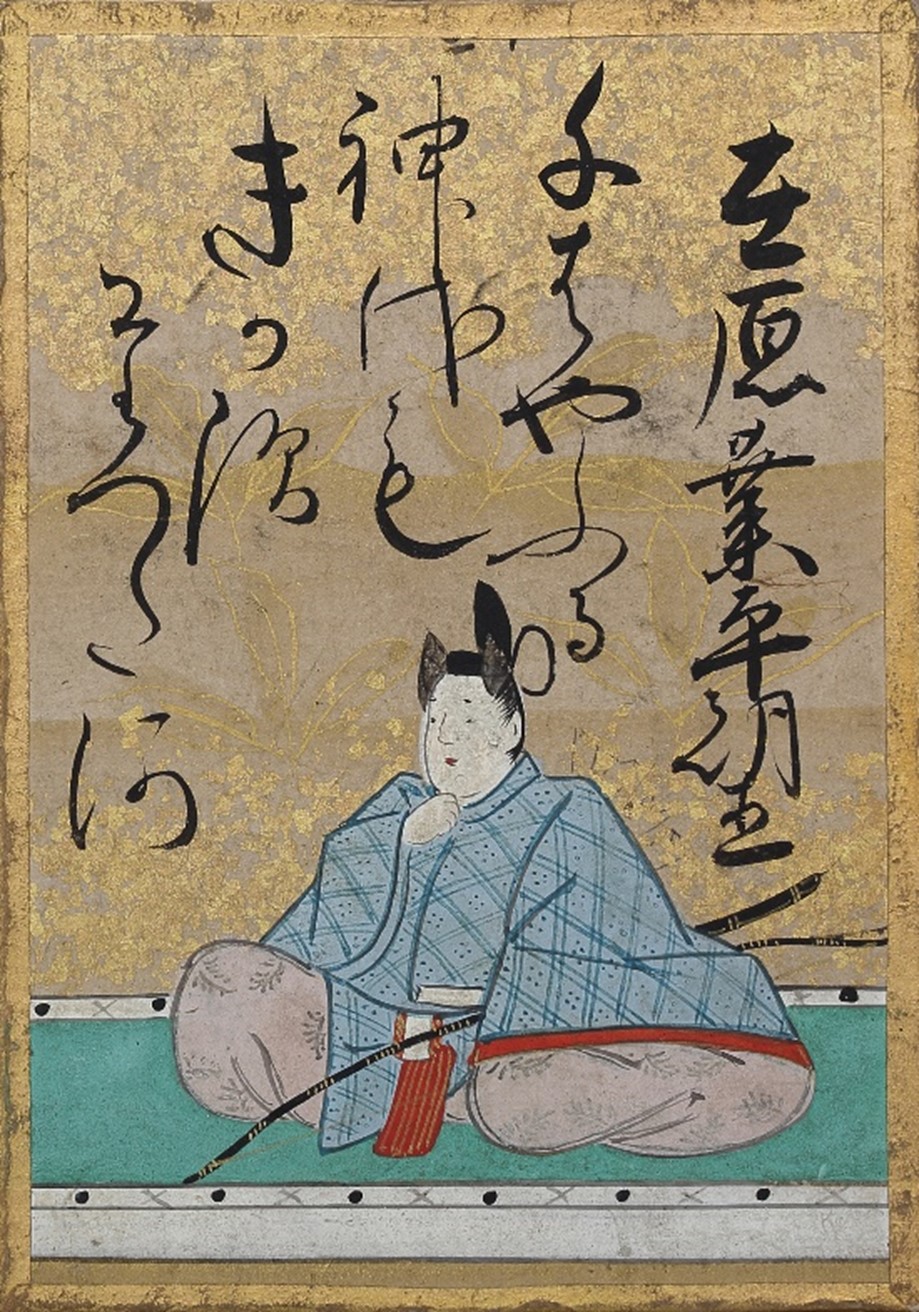 在原業平朝臣
千はやふる
神代も
きか須
たつた
河